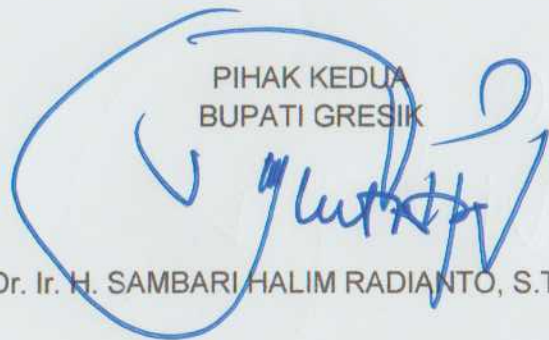 PIHAK KEDUA
BUPATI GRESIK
Dr. Ir. H. SAMBARI HALIM RADIANTO, S.T